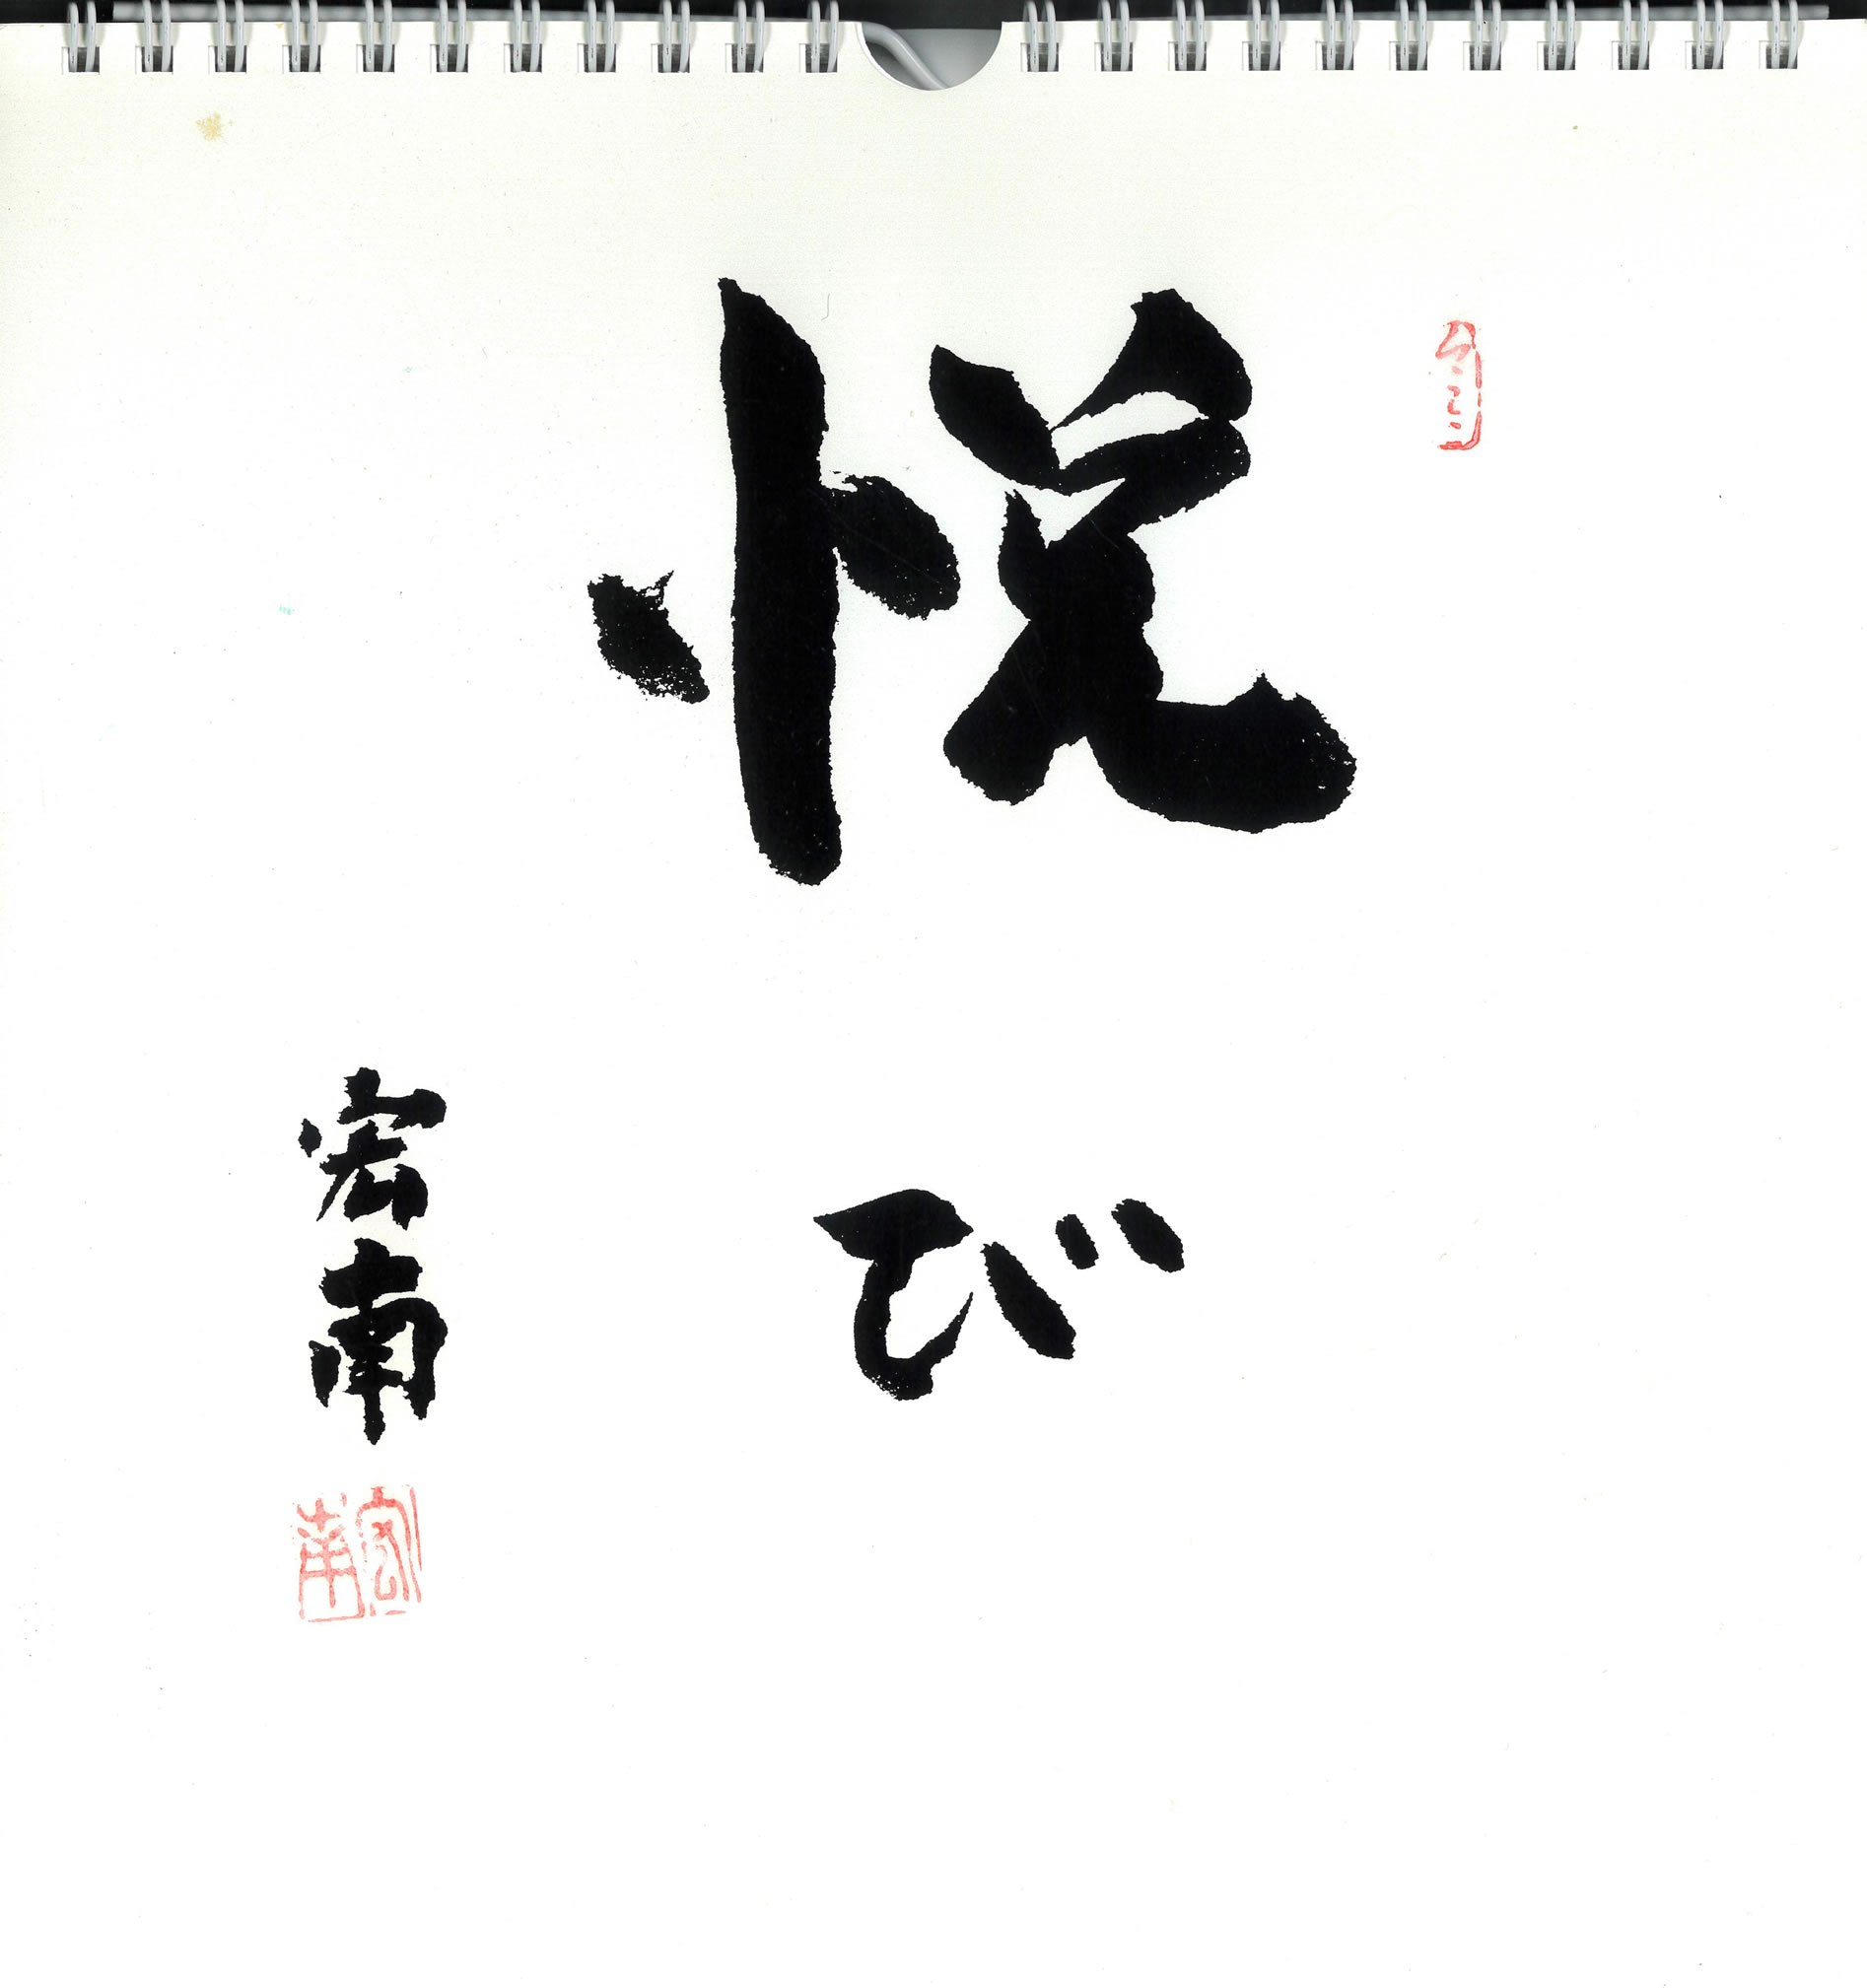 悦び
宏南
宏南